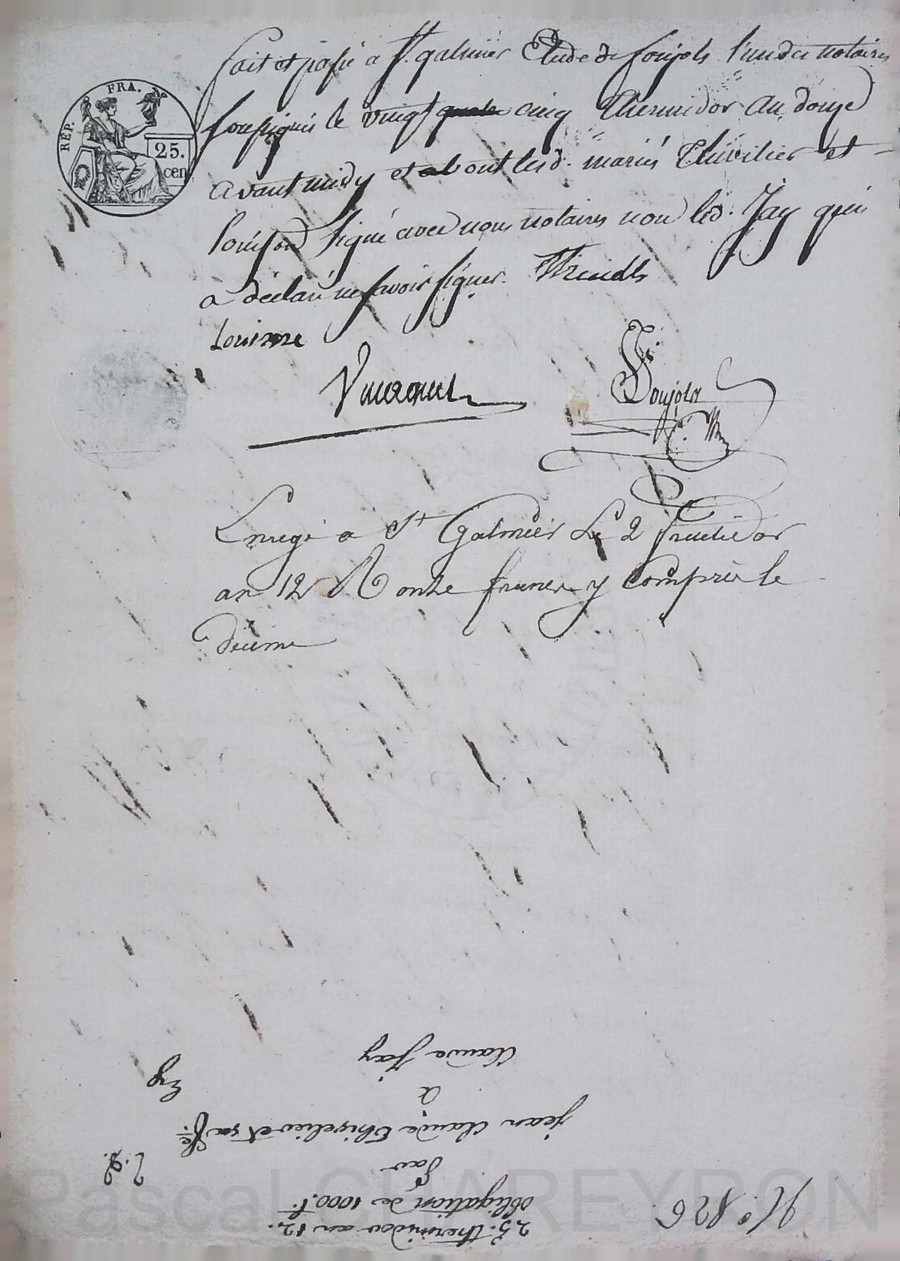 RÉP. FRA. N.
25.
cen
fait et passé a St. galmier Etude de Soujols l'un des notaires
soussignés le vingt cinq thermidor an douze
avant midy et ont lesd. mariés Thivilier et
signé avec nous notaires non led. Jay qui
a déclaré ne savoir signer.
Soujols
Enregé a St Galmier Le 2 fructidor
an 12 R onze francs y compris le
décime
N.° 826.
25. thermidor an 12.
obligation de 1000.₶
par
jean claude thivelier et sa fe.
a
claude jay
Pascal CHAREYRON